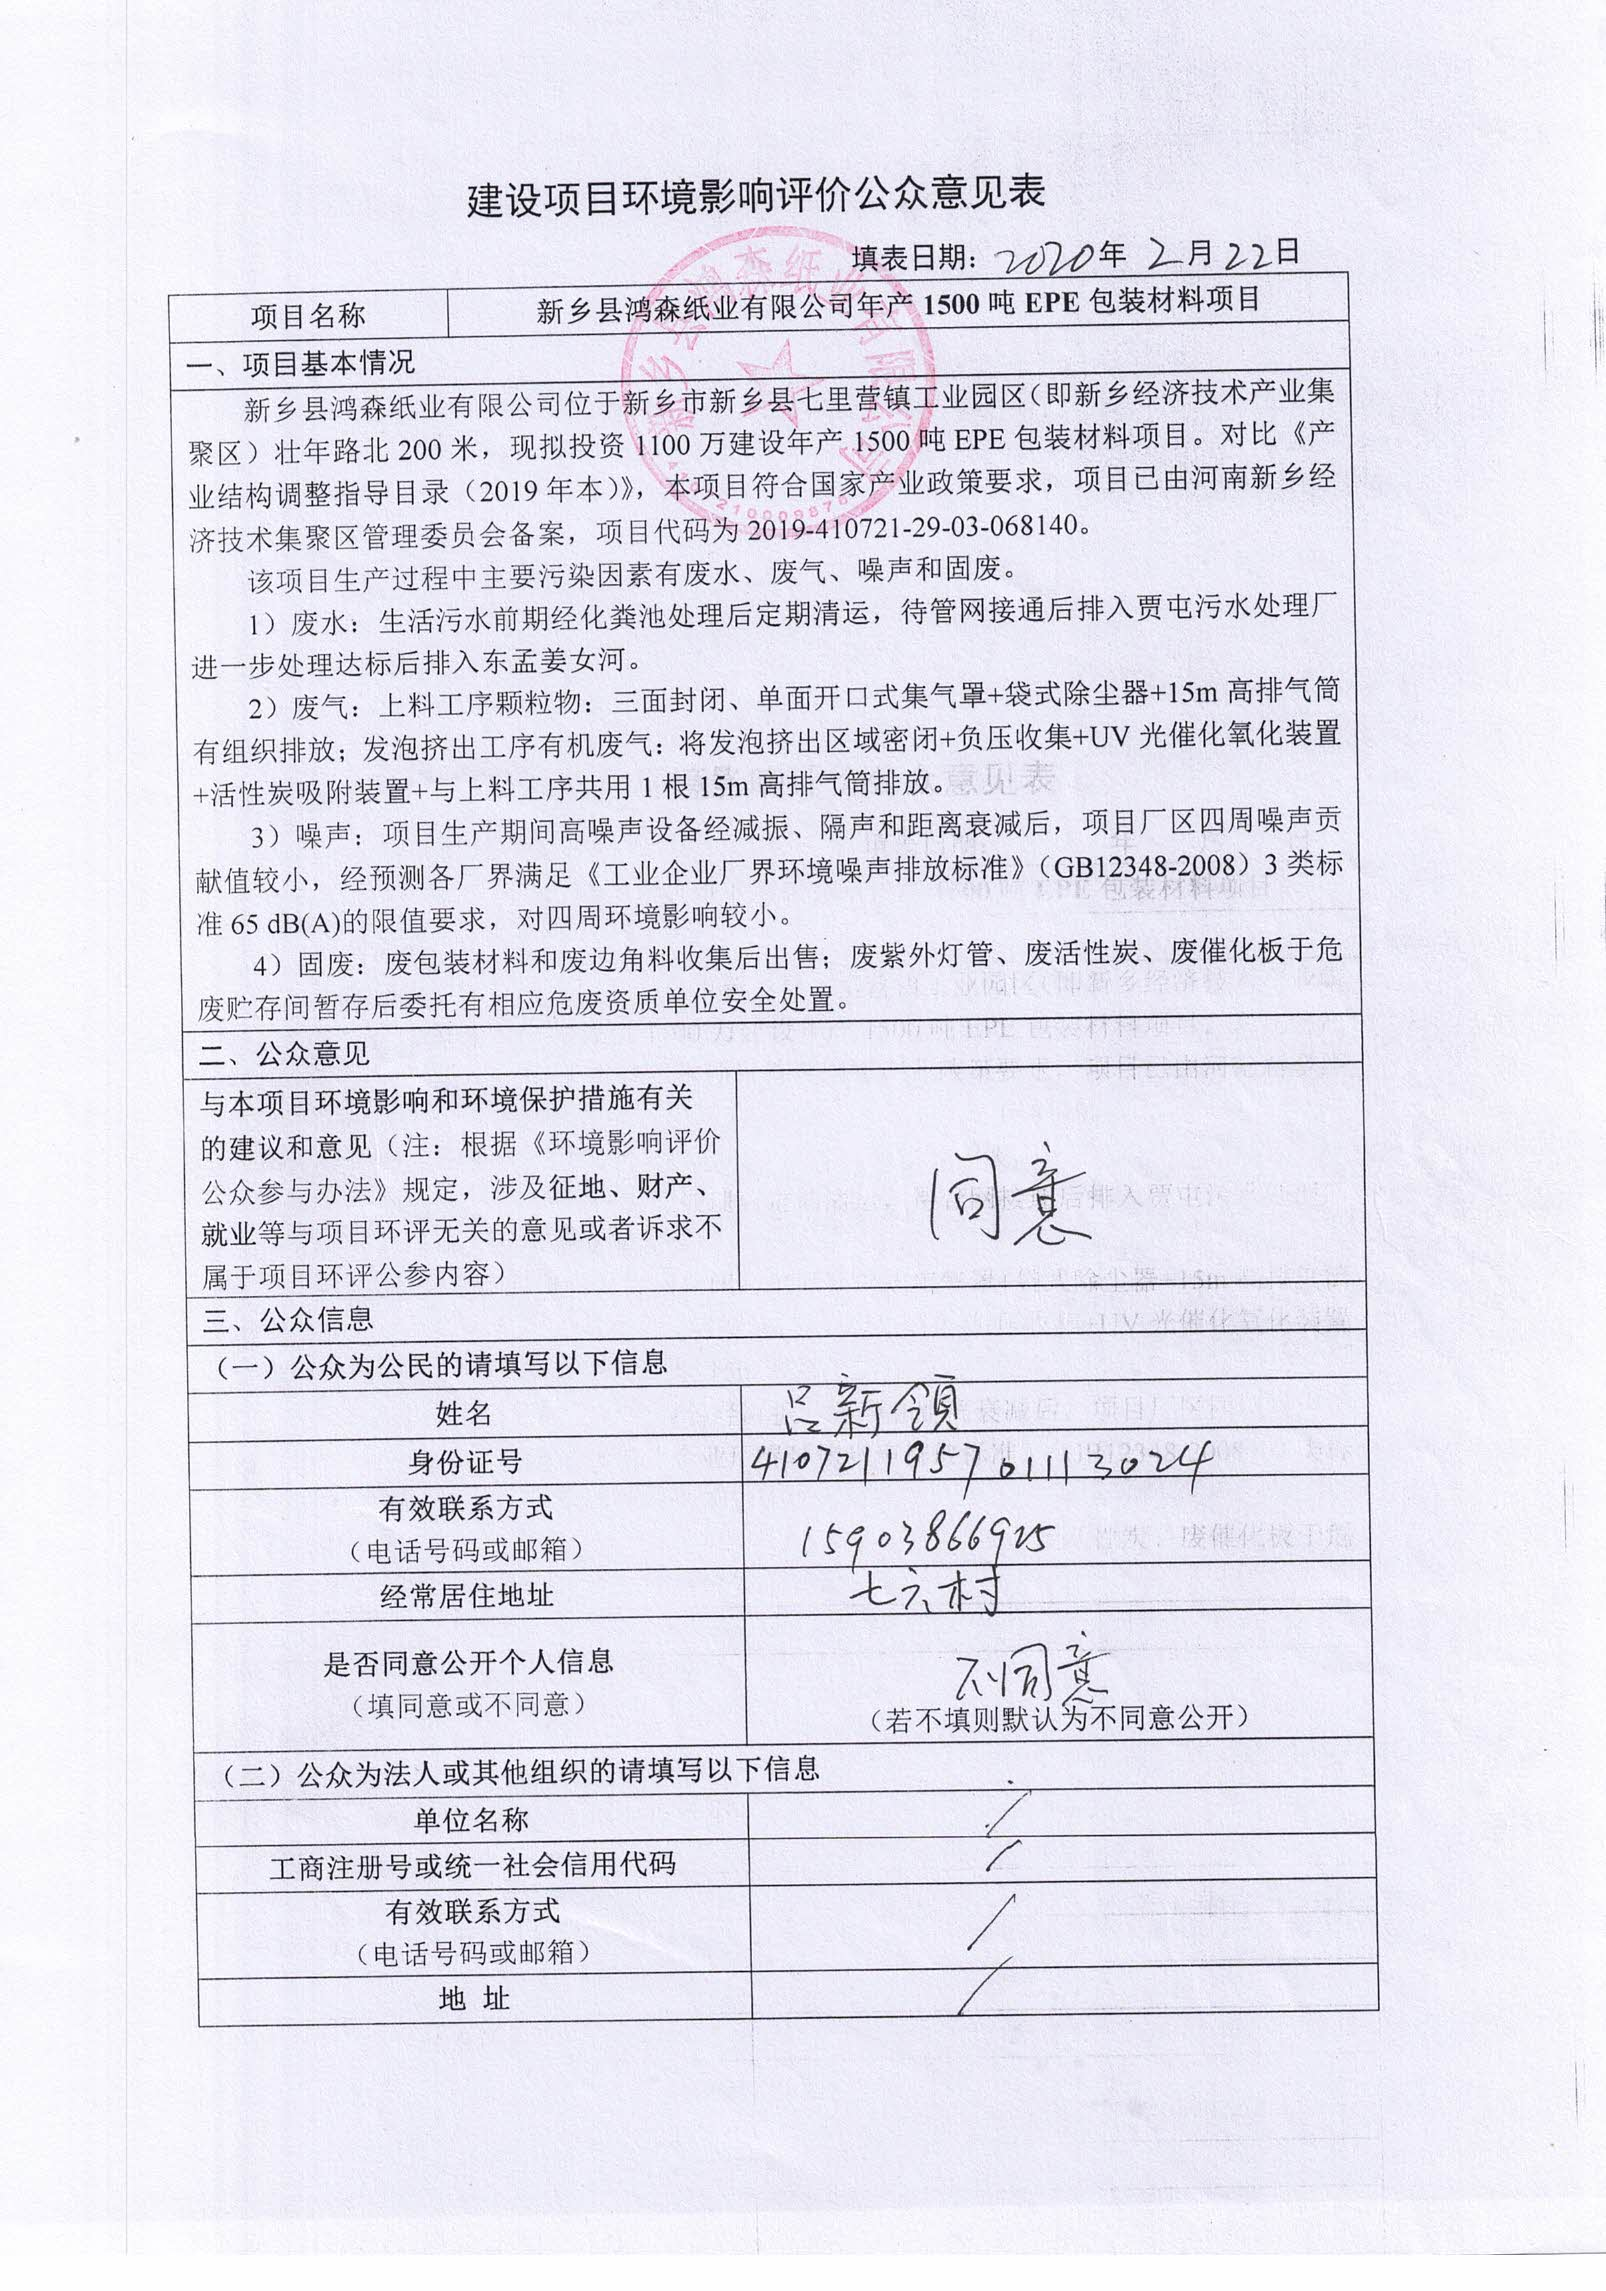 建设项目环境影响评价公众意见表
填表日期：2020年 2月22日
项目名称 新乡县鸿森纸业有限公司年产 1500 吨 EPE 包装材料项目
一、项目基本情况
新乡县鸿森纸业有限公司位于新乡市新乡县七里营镇工业园区（即新乡经济技术产业集
聚区）壮年路北 200 米，现拟投资 1100 万建设年产 1500 吨 EPE 包装材料项目。对比《产
业结构调整指导目录（2019 年本）》，本项目符合国家产业政策要求，项目已由河南新乡经
济技术集聚区管理委员会备案，项目代码为 2019-410721-29-03-068140。
该项目生产过程中主要污染因素有废水、废气、噪声和固废。
1）废水：生活污水前期经化粪池处理后定期清运，待管网接通后排入贾屯污水处理厂
进一步处理达标后排入东孟姜女河。
2）废气：上料工序颗粒物：三面封闭、单面开口式集气罩+袋式除尘器+15m 高排气筒
有组织排放；发泡挤出工序有机废气：将发泡挤出区域密闭+负压收集+UV 光催化氧化装置
+活性炭吸附装置+与上料工序共用 1 根 15m 高排气筒排放。
3）噪声：项目生产期间高噪声设备经减振、隔声和距离衰减后，项目厂区四周噪声贡
献值较小，经预测各厂界满足《工业企业厂界环境噪声排放标准》（GB12348-2008）3 类标
准 65 dB(A)的限值要求，对四周环境影响较小。
4）固废：废包装材料和废边角料收集后出售；废紫外灯管、废活性炭、废催化板于危
废贮存间暂存后委托有相应危废资质单位安全处置。
二、公众意见
与本项目环境影响和环境保护措施有关
的建议和意见（注：根据《环境影响评价
公众参与办法》规定，涉及征地、财产、
就业等与项目环评无关的意见或者诉求不
属于项目环评公参内容）
同意
三、公众信息
（一）公众为公民的请填写以下信息
姓名 吕新领
身份证号 410721195701113024
有效联系方式
（电话号码或邮箱） 15903866925
经常居住地址 七六村
是否同意公开个人信息
（填同意或不同意）
不同意
（若不填则默认为不同意公开）
（二）公众为法人或其他组织的请填写以下信息
单位名称 /
工商注册号或统一社会信用代码 /
有效联系方式
（电话号码或邮箱） /
地 址 /
新乡县鸿森纸业有限公司